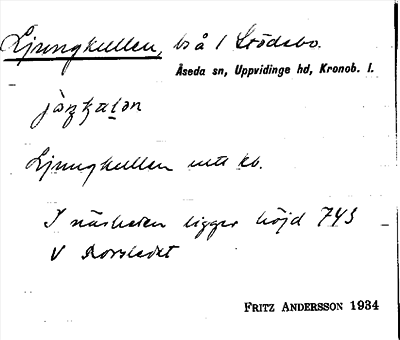 Ljungkullen, bå 1 Stödsbo.
Åseda sn, Uppvidinge hd, Kronob. l.
Ljungkullen utt kb.
I närheten ligger höjd 743
V
FRITZ ANDERSSON 1934